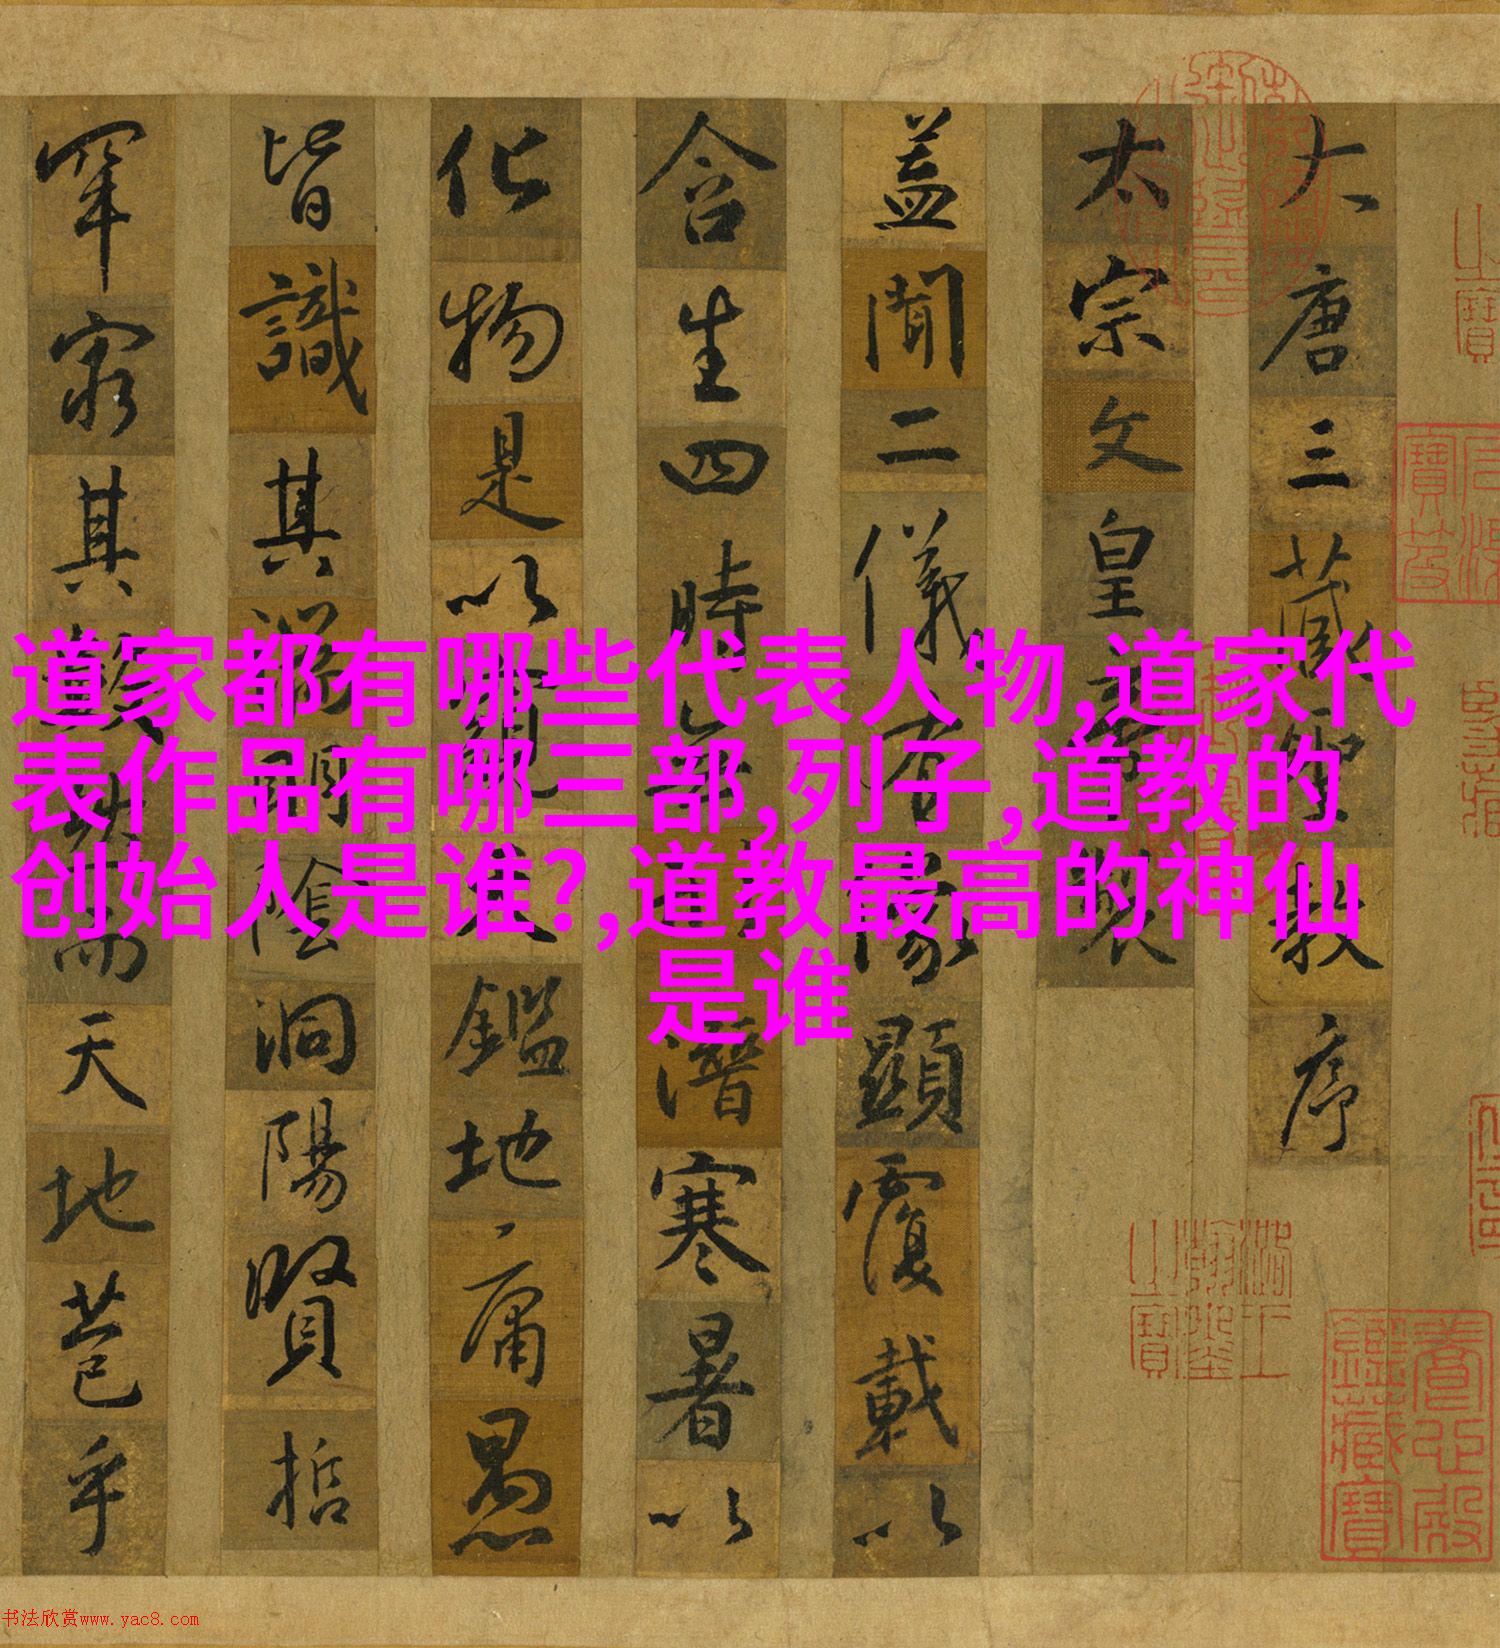 道家都有哪些代表人物,道家代
表作品有哪三部,列子,道教的
创始人是谁?,道教最高的神仙
是谁
大唐三藏聖教序
太宗文皇帝製
盖聞二儀有象顯覆載以
含生四時無形潛寒暑以
化物是以窺天鑑地庸愚
皆識其端明陰洞陽賢哲
罕窮其數然而天地苞乎
石渠寶笈
養心殿鑑藏寶
书法欣赏www.yac8.com